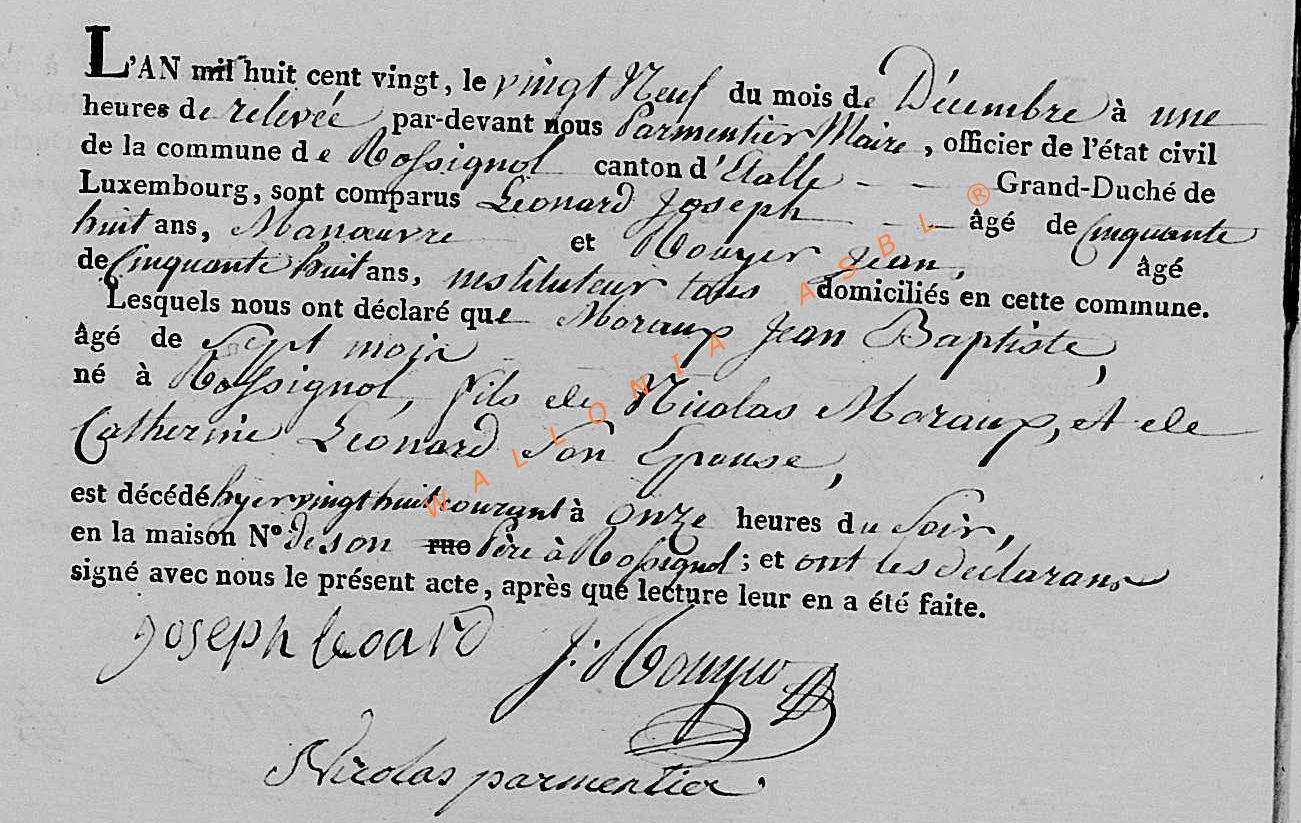 L'AN mil huit cent vingt, le vingt Neuf du mois de Décembre à une
heures de relevée par-devant nous Parmentier Maire, officier de l'état civil
de la commune de Rossignol canton d'Etalle - - Grand-Duché de
Luxembourg, sont comparus Léonard Joseph âgé de Cinquante
huit ans, Manœuvre et Rouyer Jean, âgé
de Cinquante huit ans, instituteur tous domiciliés en cette commune.
Lesquels nous ont déclaré que Moraux Jean Baptiste,
âgé de Sept mois
né à Rossignol, fils de Nicolas Moraux, et de
Catherine Léonard Son Epouse,
est décédé hyer vingt huit courant à Onze heures du Soir,
en la maison N° de son rue Père à Rossignol; et ont les declarans
signé avec nous le présent acte, après que lecture leur en a été faite.
Joseph leoard J: Rouyer
Nicolas parmentier.
WALLONIA ASBL ®